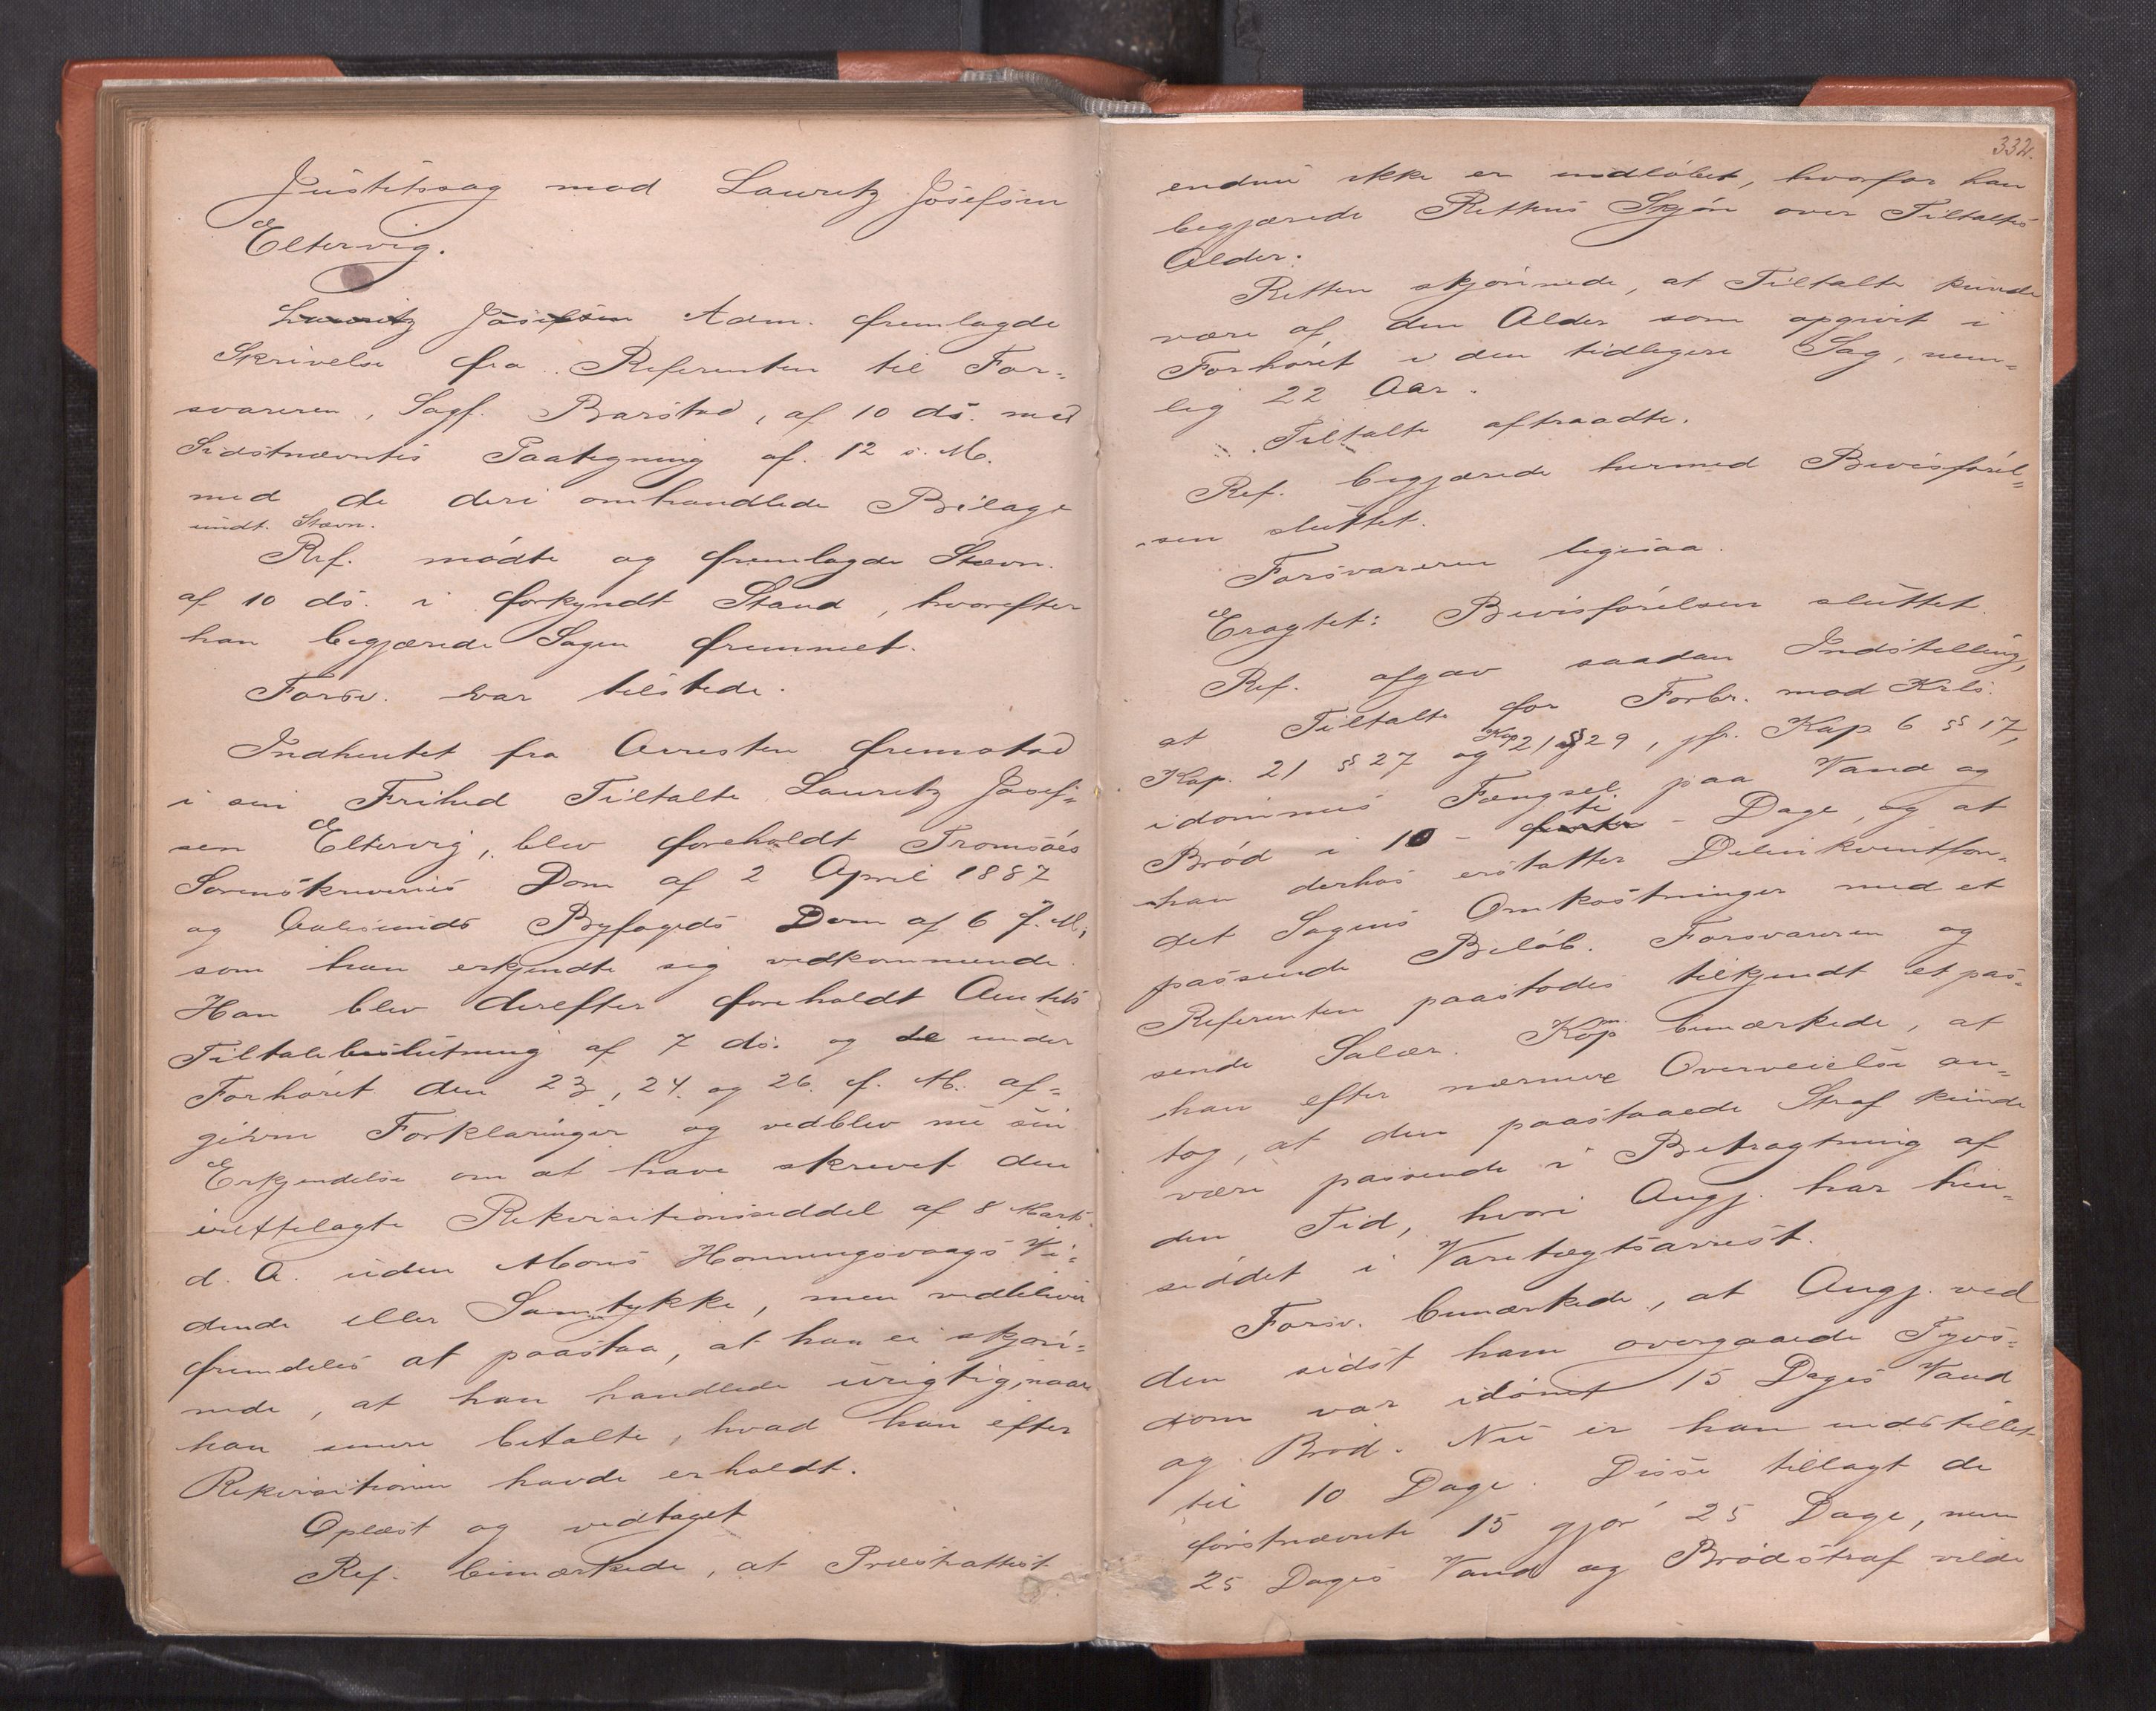 Justitssag mod Lauritz Josefsen
Eltervig.
Lauritz Josefsen Adm. fremlagde
Skrivelse fra Referenten til For-
svareren, Sagf. Barstad, af 10 ds. med
Sidstnævntes Paategning af 12 s. M.
med de deri omhandlede Bilage
undt. Stævn.
Ref. mødte og fremlagde Stævn.
af 10 ds. i forkyndt Stand, hvorefter
han begjærede Sagen fremmet.
Forsv. var tilstede.
Indhentet fra Arresten fremstod
i sin Frihed Tiltalte Lauritz Josef-
sen Eltervig, blev foreholdt Tromsøes
Sorenskriveries Dom af 2 April 1887
og Aalesunds Byfogeds Dom af 6 f. M.,
som han erkjendte sig vedkommende.
Han blev derefter foreholdt Amtets
Tiltalebeslutning af 7 ds. og de under
Forhøret den 23, 24. og 26. f. M. af-
givne Forklaringer og vedblev nu sin
Erkjendelse om at have skrevet den
irettelagte Rekvisitionsseddel af 8 Marts
d. A. uden Mons Honningsvaags Vi-
dende eller Samtykke, men vedbliver
fremdeles at paastaa, at han ei skjøn-
nede, at han handlede urigtig, naar
han senere betalte, hvad han efter
Rekvisitionen havde erholdt.
Oplæst og vedtaget
Ref. bemærkede, at Præstattest
332.
endnu ikke er indløbet, hvorfor han
begjærede Rettens Skjøn over Tiltaltes
Alder.
Retten skjønnede, at Tiltalte kunde
være af den Alder som opgivet i
Forhøret i den tidligere Sag, nem-
lig 22 Aar.
Tiltalte aftraadte.
Ref. begjærede hermed Bevisførel-
sen sluttet.
Forsvareren ligesaa.
Eragtet: Bevisførelsen sluttet.
Ref. afgav saadan Indstilling,
at Tiltalte for Forbr. mod Krls.
Kap. 21 § 27 og Kap 21 § 29, jfr. Kap 6 §§ 17,
idømmes Fængsel paa Vand og
Brød i 10 - ti - Dage, og at
han derhos erstatter Delinkventfon-
det Sagens Omkostninger med et
passende Beløb. Forsvareren og
Referenten paastodes tilkjendt et pas-
sende Salær. Kom bemærkede, at
han efter nærmere Overveielse an-
tog, at den paastaaede Straf kunde
være passende i Betragtning af
den Tid, hvori Angj. har hen-
siddet i Varetægtsarrest.
Forsv. bemærkede, at Angj. ved
den sidst ham overgaaede Tyvs-
dom var idømt 15 Dages Vand
og Brød. Nu er han indstillet
til 10 Dage. Disse tillagt de
førstnævnte 15 gjør 25 Dage, men
25 Dages Vand og Brødstraf vilde